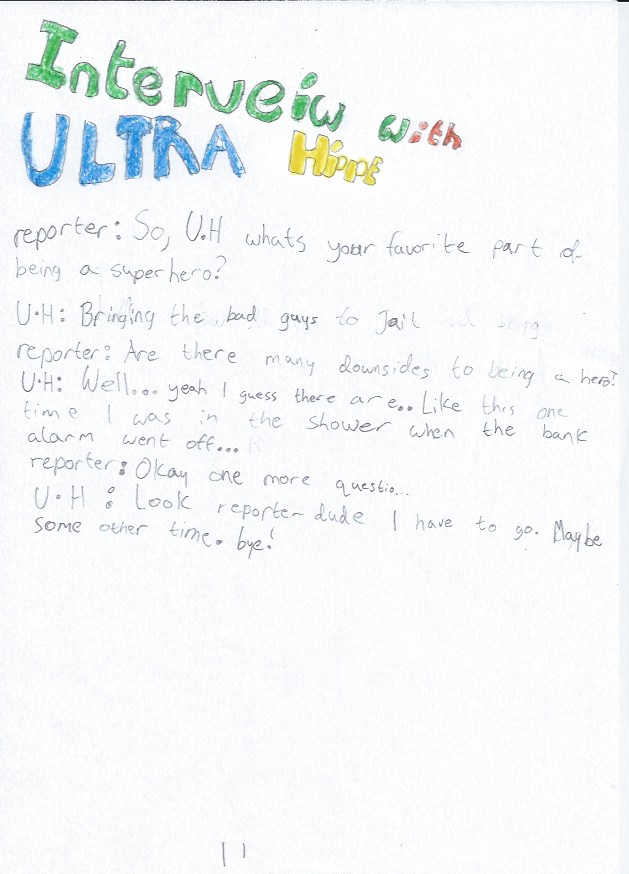 Interveiw with
ULTRA HippE
reporter: So, U.H whats your favorite part of
being a superhero?
U.H: Bringing the bad guys to Jail
reporter: Are there many downsides to being a hero?
U.H: Well... yeah I guess there are.. Like this one
time I was in the shower when the bank
alarm went off...
reporter: Okay one more questio...
U.H: Look reporter dude I have to go. Maybe
some other time. bye!
11